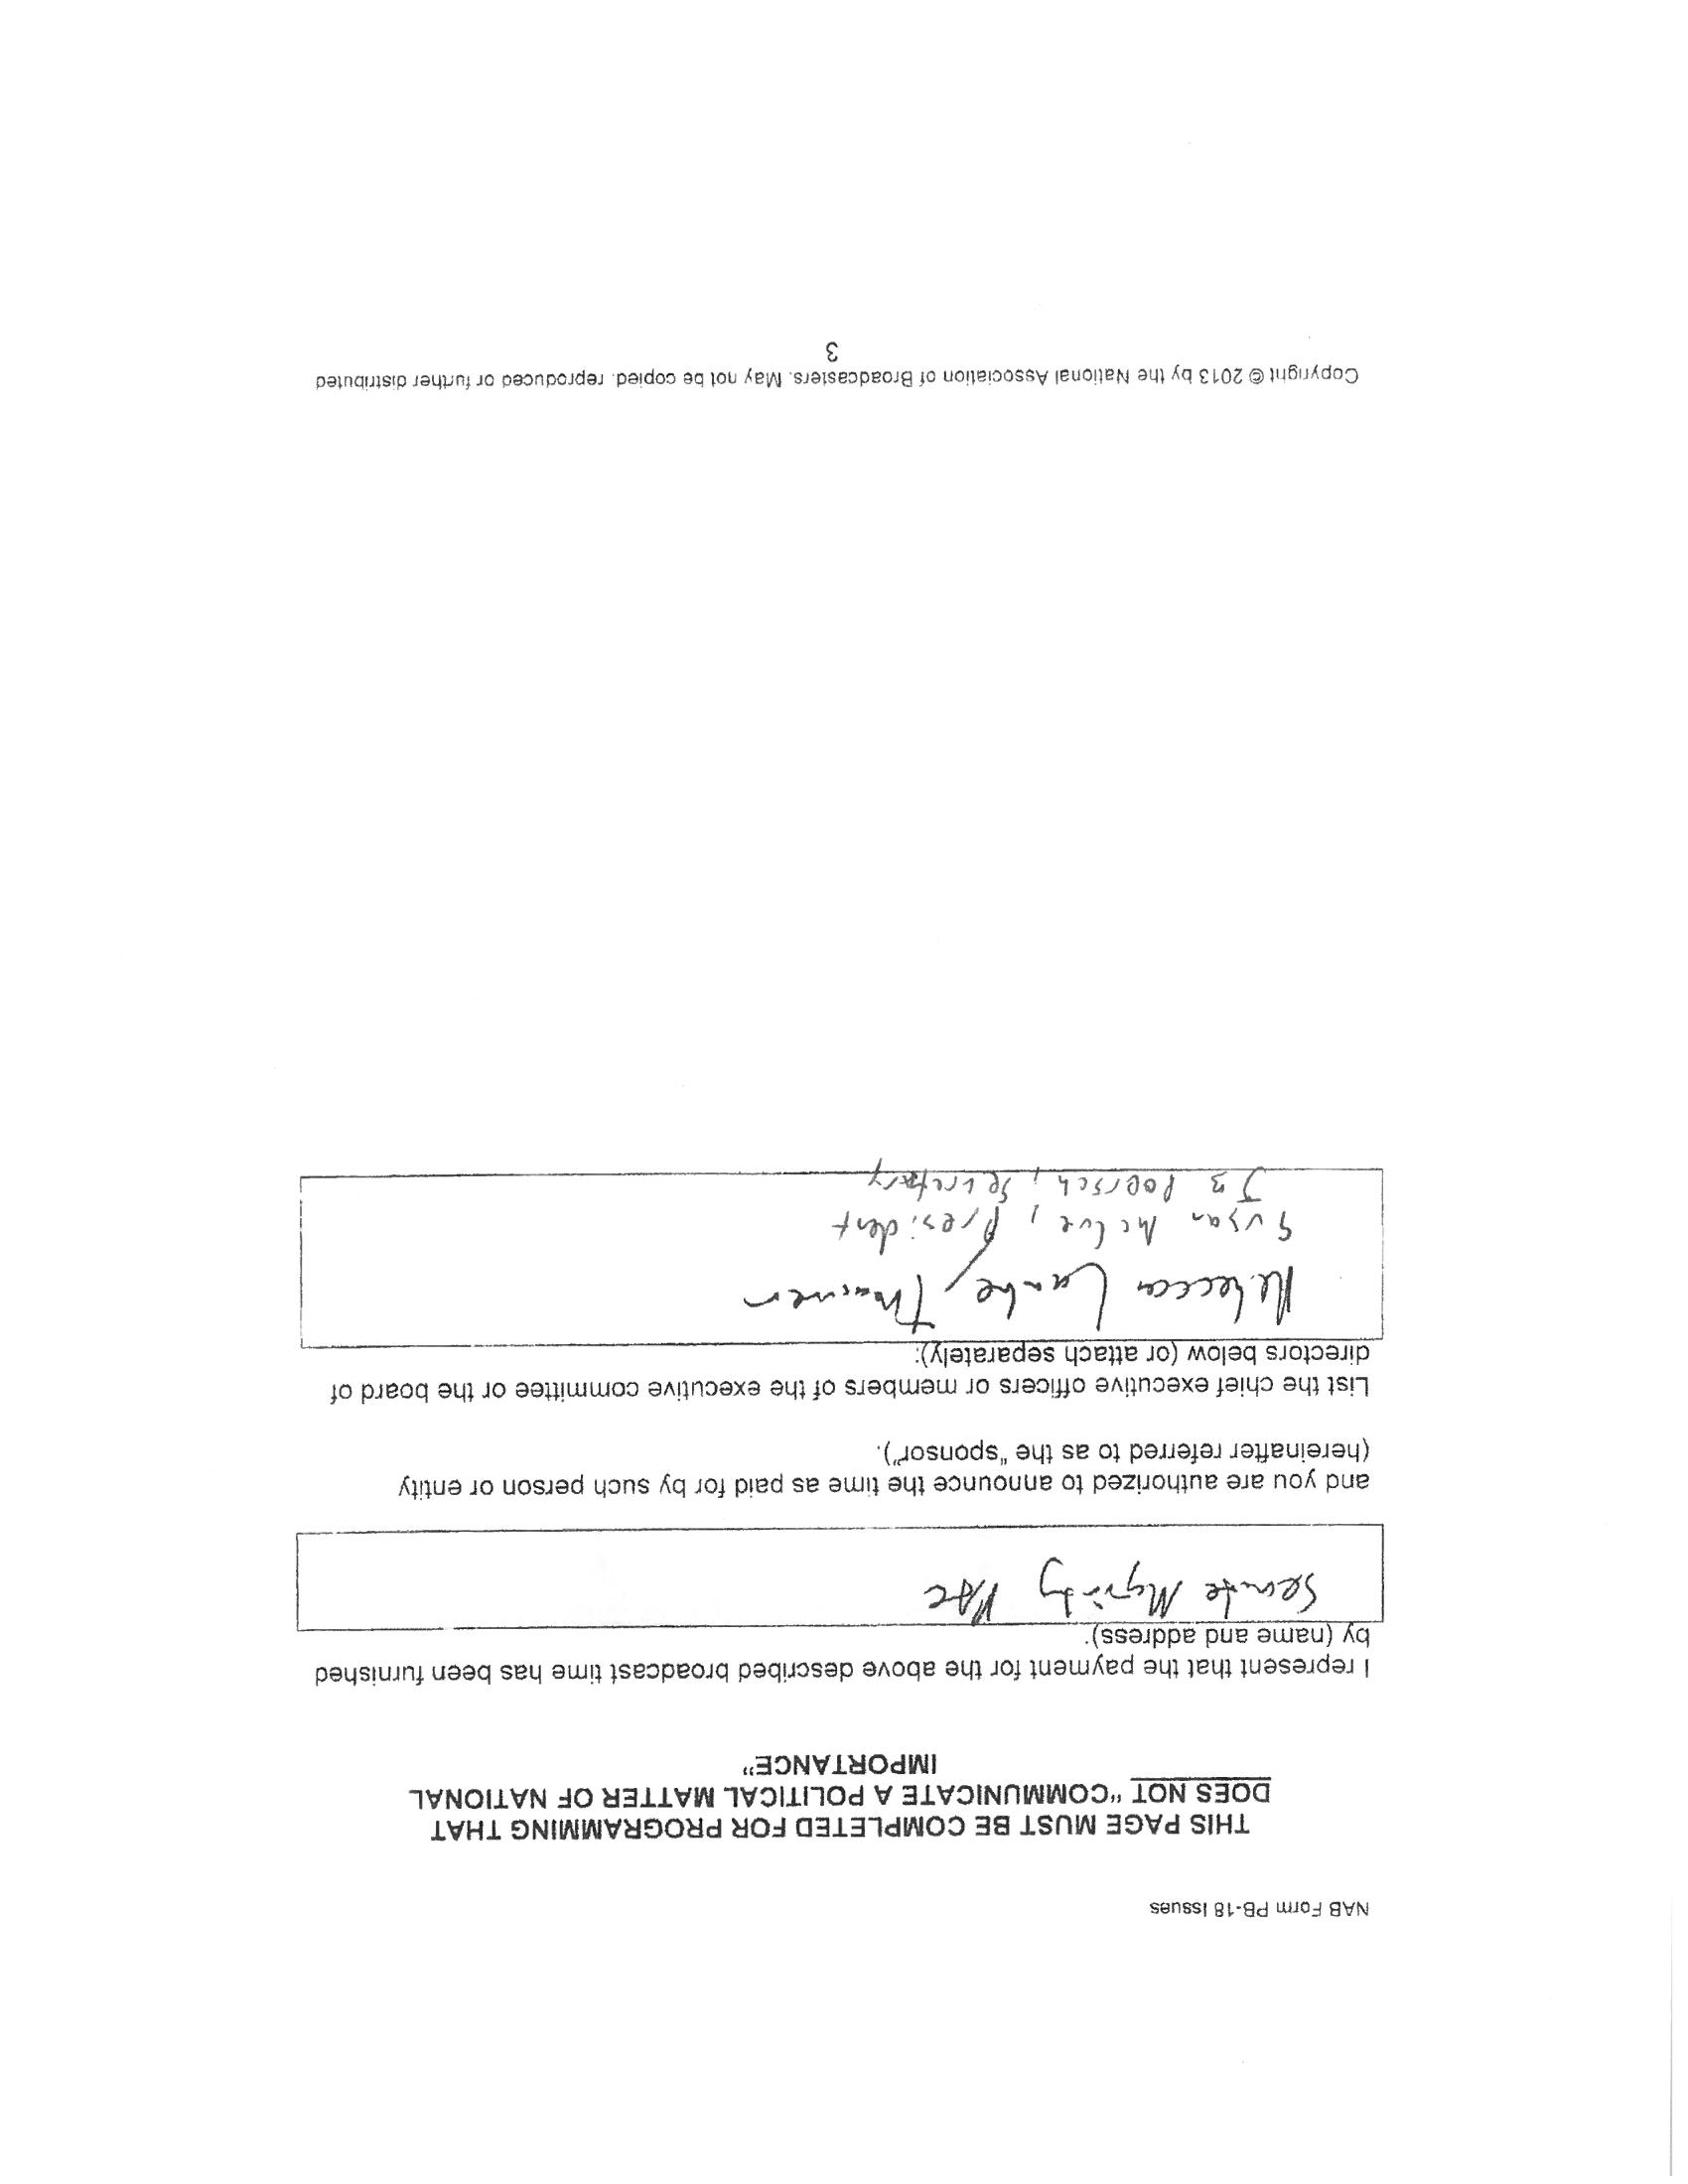 NAB Form PB-18 Issues
THIS PAGE MUST BE COMPLETED FOR PROGRAMMING THAT
DOES NOT "COMMUNICATE A POLITICAL MATTER OF NATIONAL
IMPORTANCE"
I represent that the payment for the above described broadcast time has been furnished
by (name and address):
Senate Majority PAC
and you are authorized to announce the time as paid for by such person or entity
(hereinafter referred to as the "sponsor").
List the chief executive officers or members of the executive committee or the board of
directors below (or attach separately):
Rebecca Lambe, Treasurer
Susan McCue, President
JB Poersch, Secretary
Copyright © 2013 by the National Association of Broadcasters. May not be copied, reproduced or further distributed
3